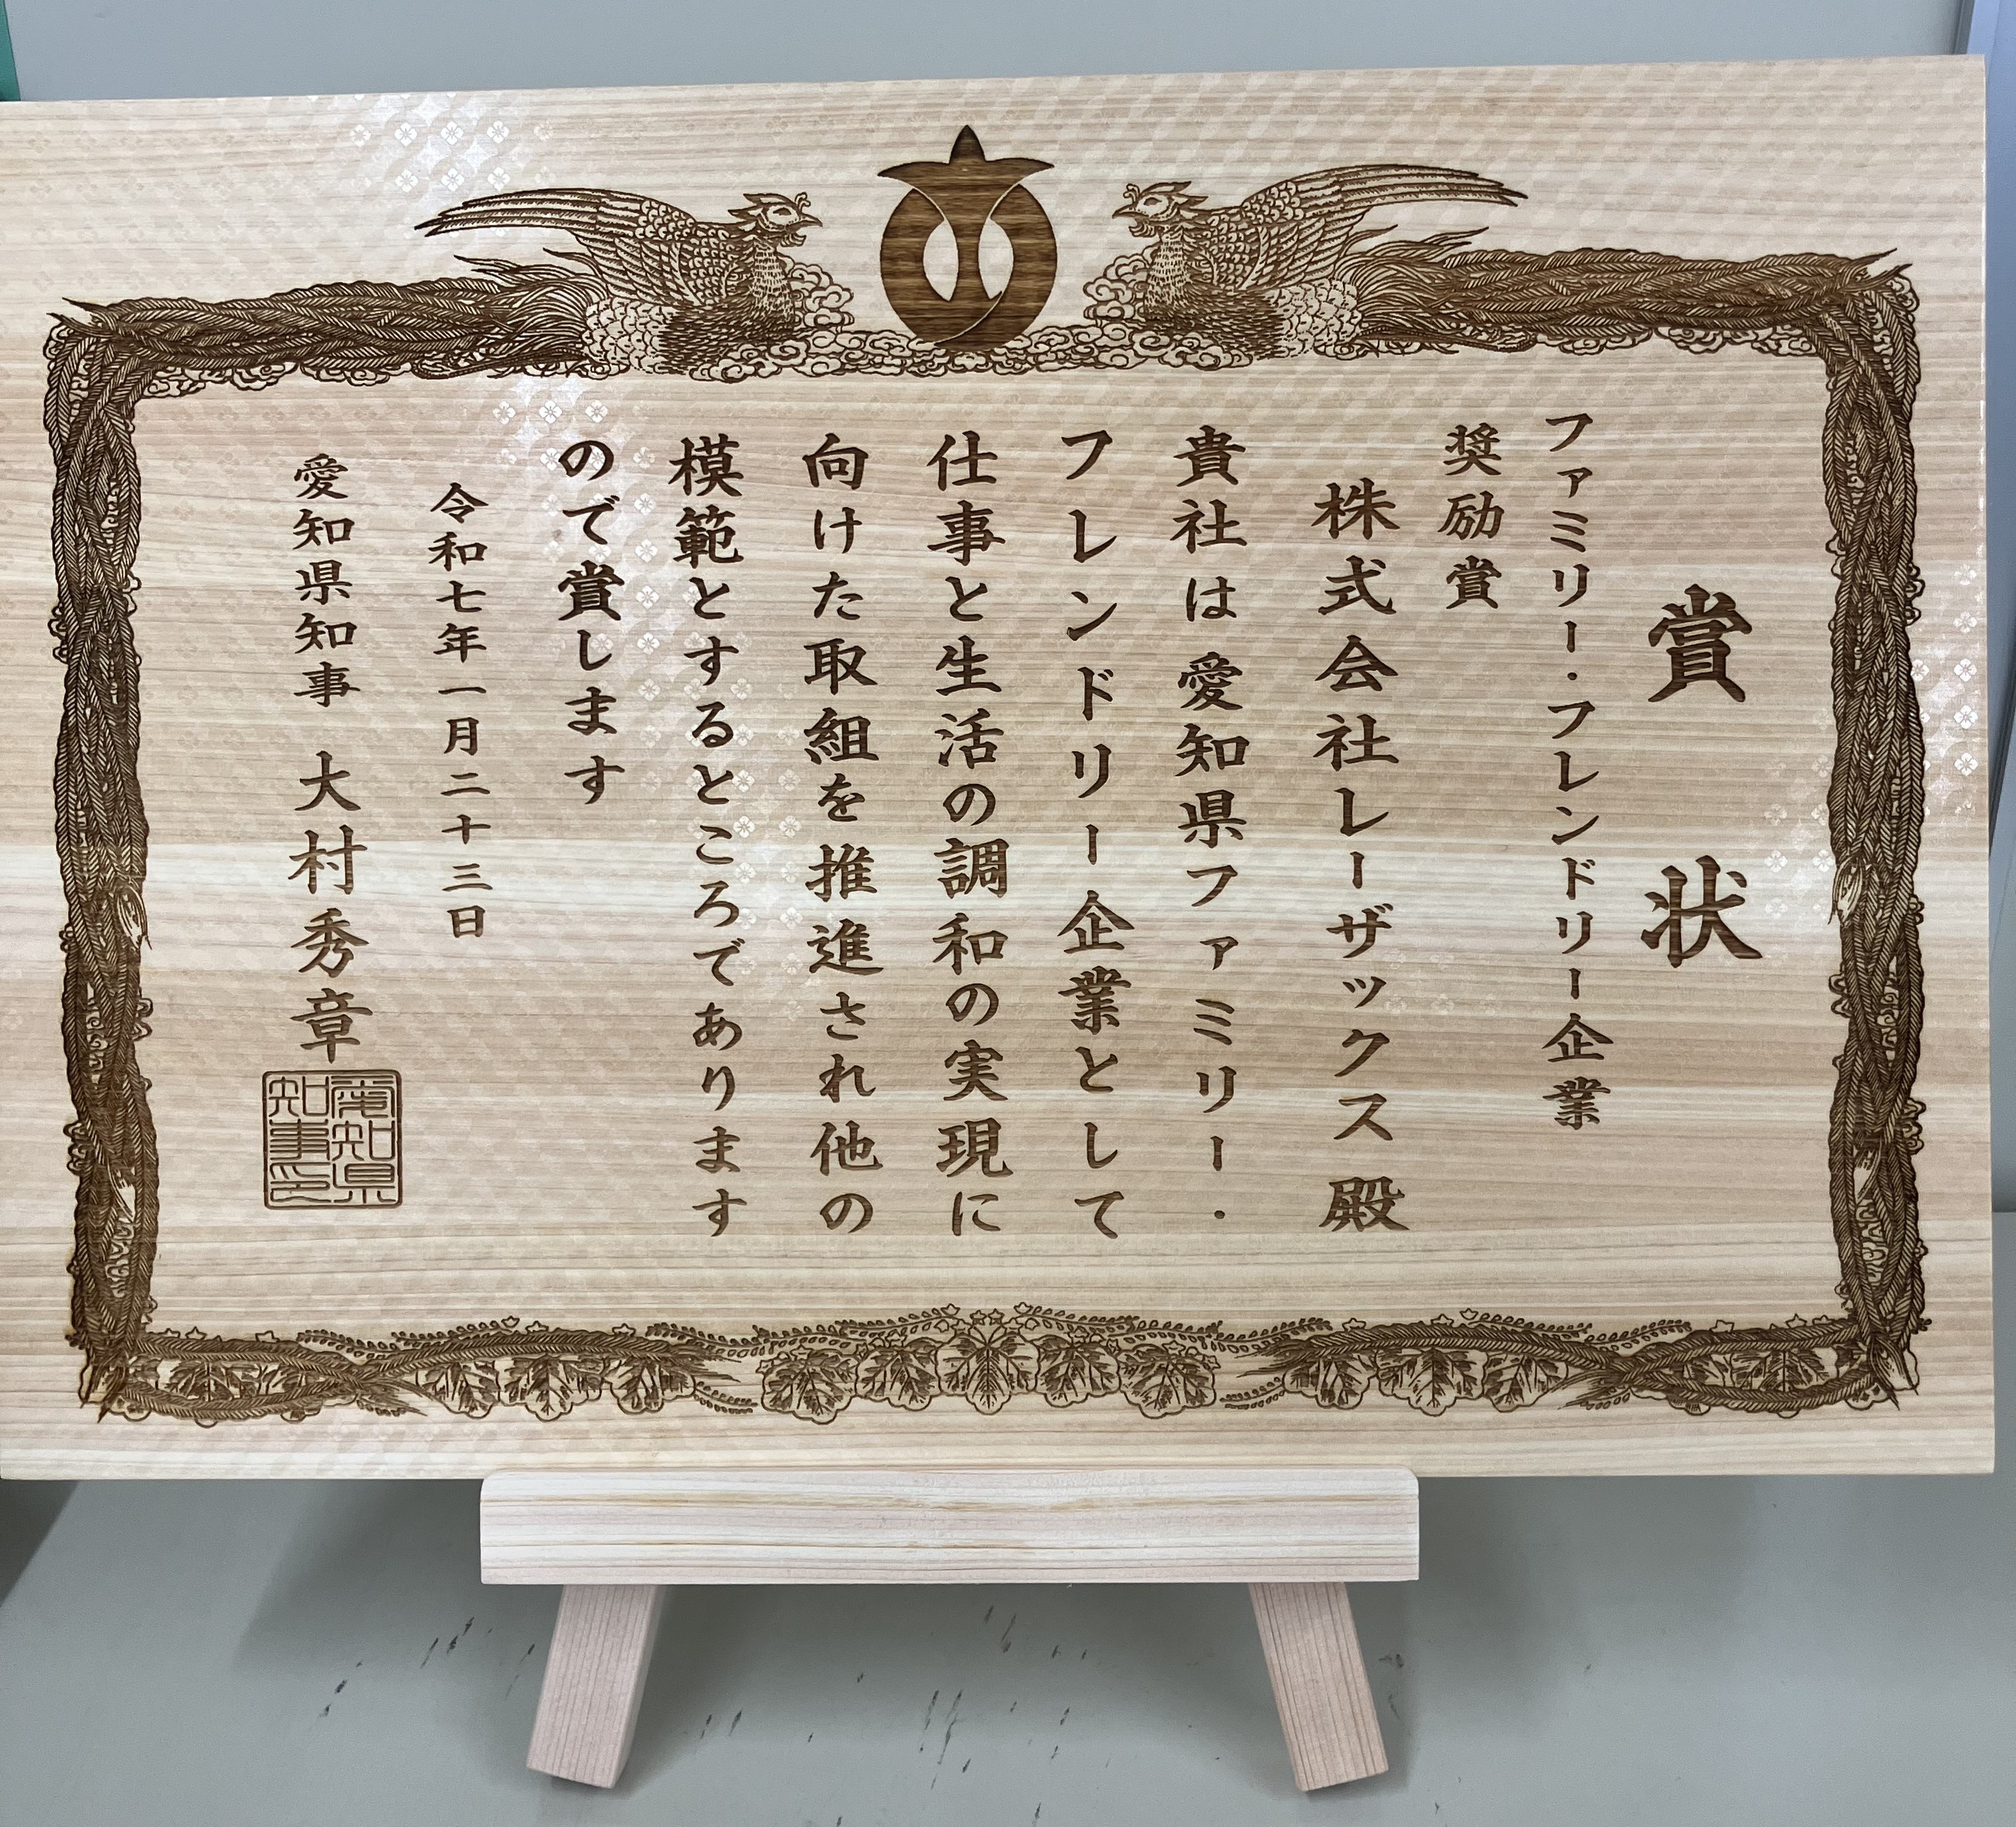 賞状
ファミリー・フレンドリー企業
奨励賞
株式会社レーザックス殿
貴社は愛知県ファミリー・
フレンドリー企業として
仕事と生活の調和の実現に
向けた取組を推進され他の
模範とするところであります
ので賞します
令和七年一月二十三日
愛知県知事 大村秀章
愛知県
知事之印